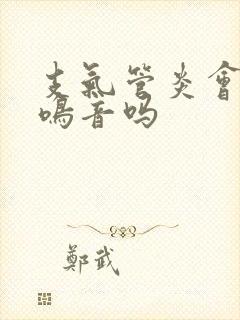 支氣管炎會
鳴音吗
鄭武